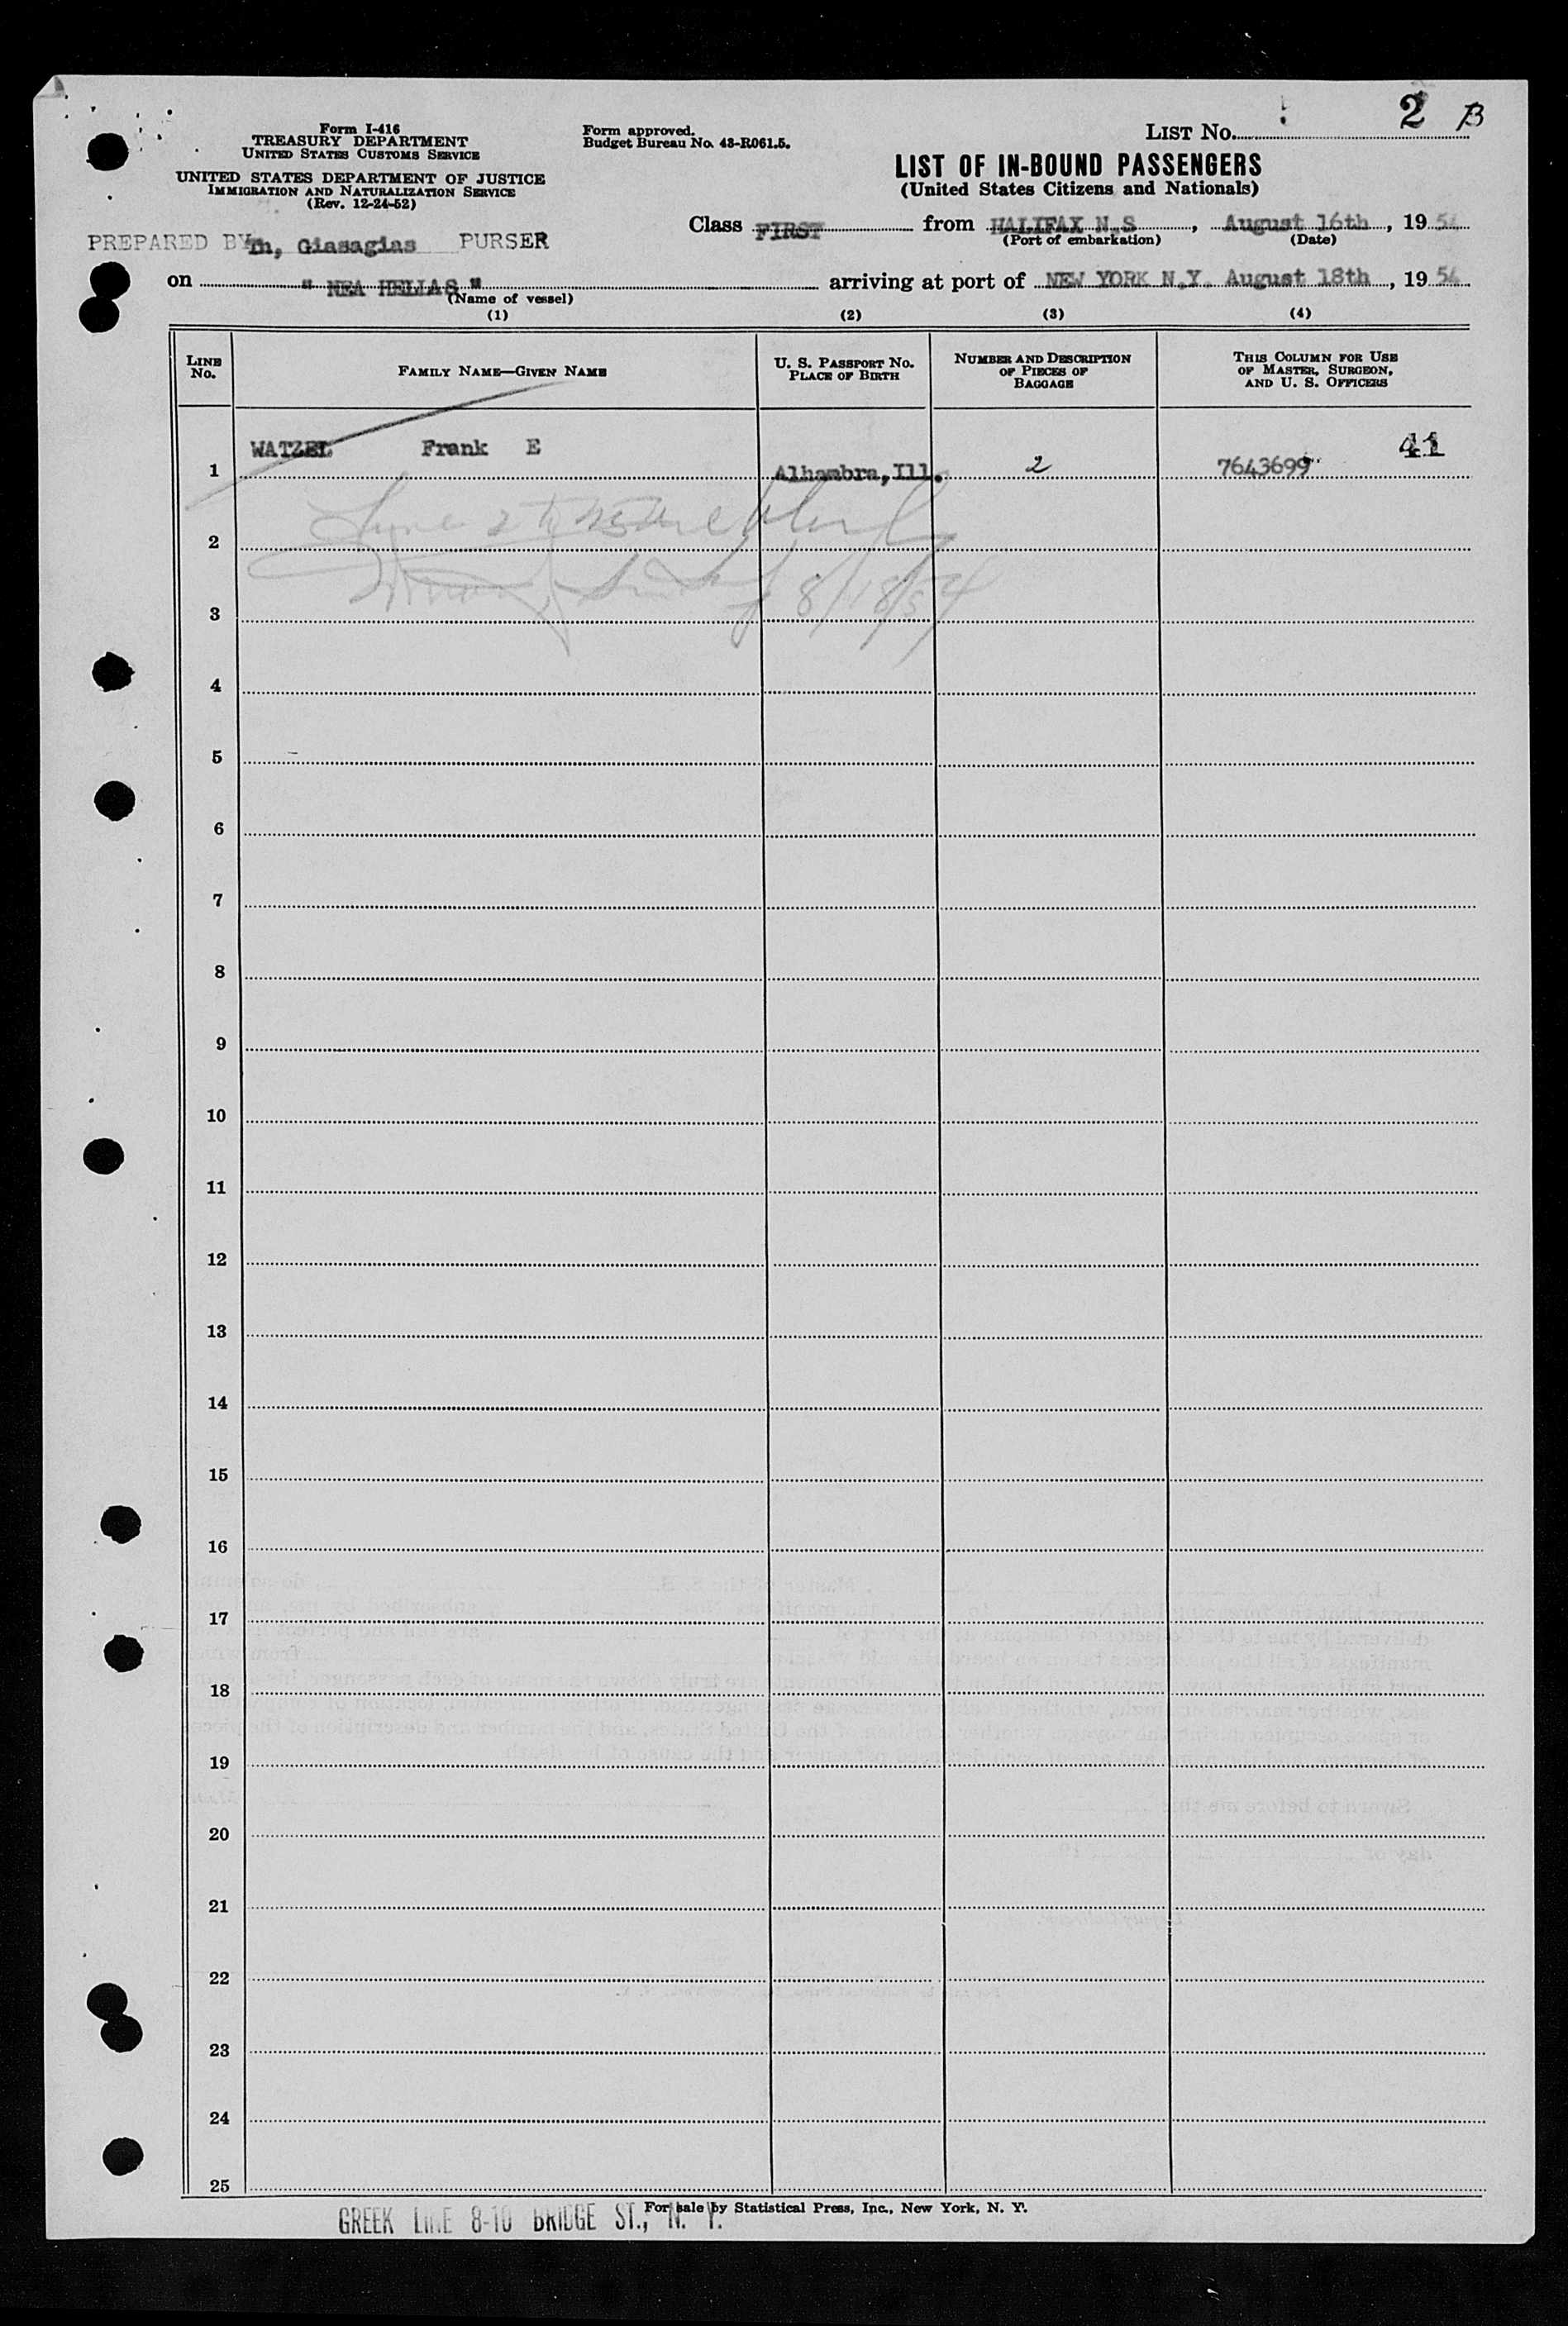 2 B
Form I-416
TREASURY DEPARTMENT
UNITED STATES CUSTOMS SERVICE
UNITED STATES DEPARTMENT OF JUSTICE
IMMIGRATION AND NATURALIZATION SERVICE
(Rev. 12-24-52)
Form approved.
Budget Bureau No. 43-R061.5.
LIST No.
LIST OF IN-BOUND PASSENGERS
(United States Citizens and Nationals)
Class FIRST from HALIFAX N.S , August 16th , 19 54
(Port of embarkation) (Date)
PREPARED BY Th, Giasagias PURSER
on " NEA HELLAS " arriving at port of NEW YORK N.Y. August 18th , 19 54
(Name of vessel)
(1) (2) (3) (4)
LINE No. FAMILY NAME—GIVEN NAME U. S. PASSPORT No. PLACE OF BIRTH NUMBER AND DESCRIPTION OF PIECES OF BAGGAGE THIS COLUMN FOR USE OF MASTER, SURGEON, AND U. S. OFFICERS
1 WATZEL Frank E Alhambra, Ill. 2 7643699 41
2
3 8/18/54
4
5
6
7
8
9
10
11
12
13
14
15
16
17
18
19
20
21
22
23
24
25
For sale by Statistical Press, Inc., New York, N. Y.
GREEK LINE 8-10 BRIDGE ST., N. Y.